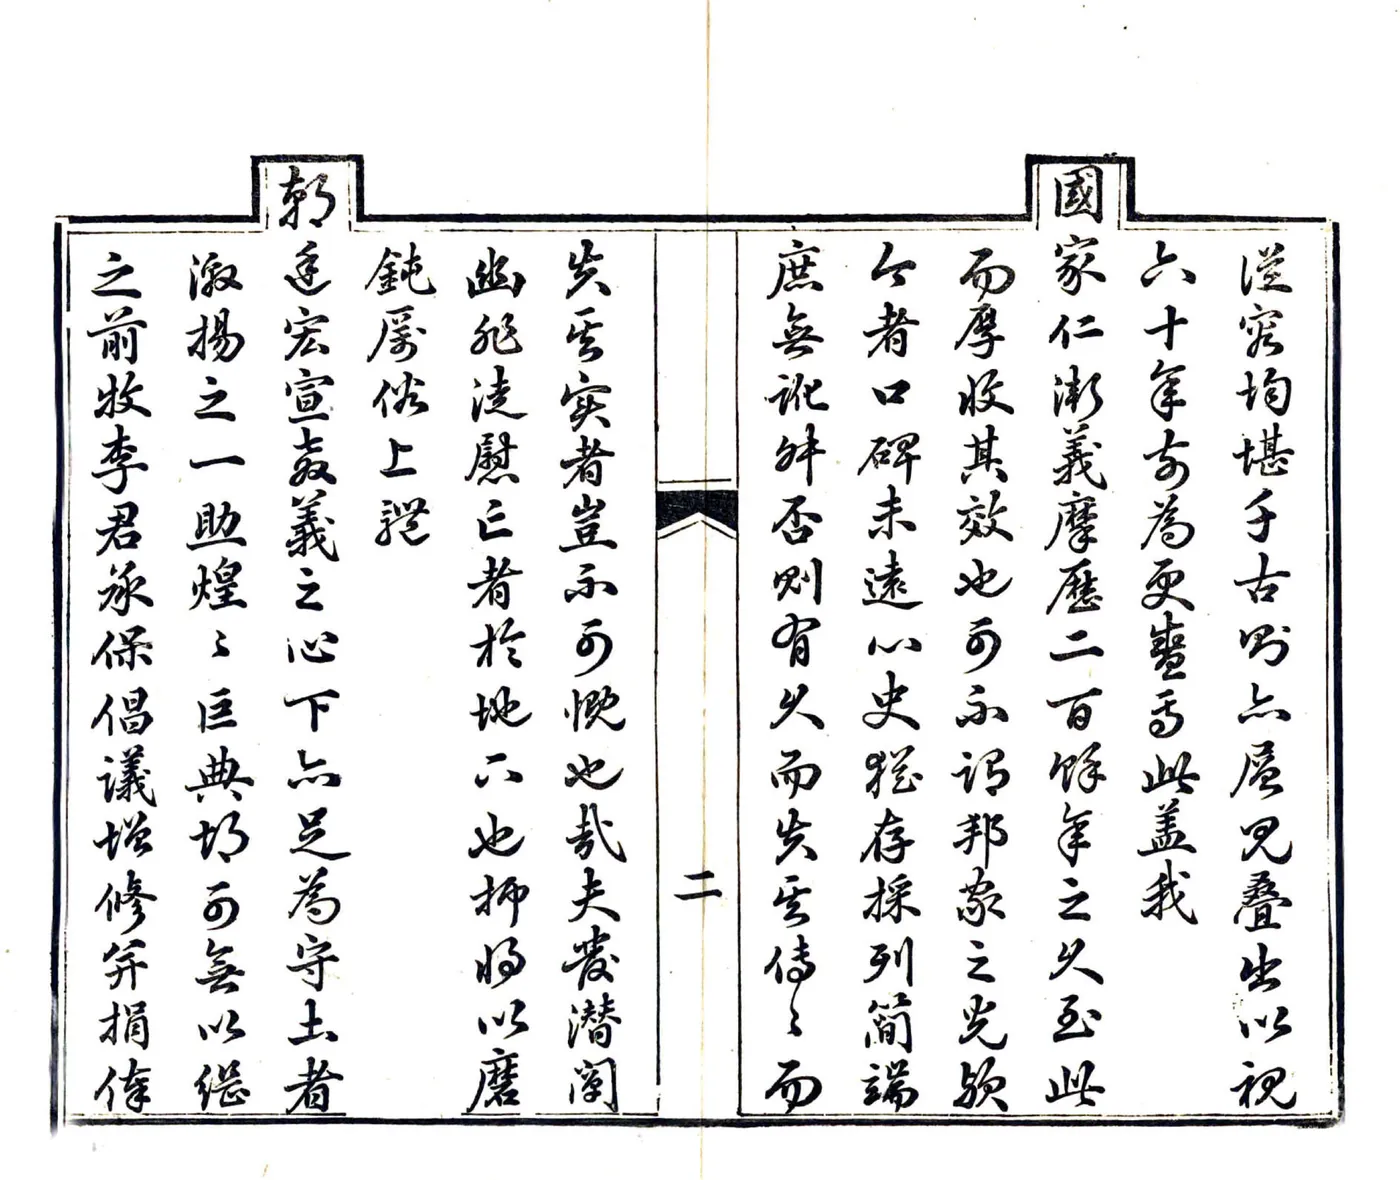 從容均堪千古則亦層見疊出以視
六十年前為更盛焉此蓋我
國家仁漸義摩歷二百餘年之久至此
而厚收其效也可不謂邦家之光歟
今者口碑未遠心史猶存採列簡端
庶無訛舛否則有久而失其傳〻而
二
失其實者豈不可慨也哉夫發潛闡
幽非徒慰亡者於地下也抑將以磨
鈍厲俗上體
朝廷宏宣義之心下亦足為守土者
激揚之一助煌〻巨典胡可無以繼
之前牧李君承保倡議增修并捐俸